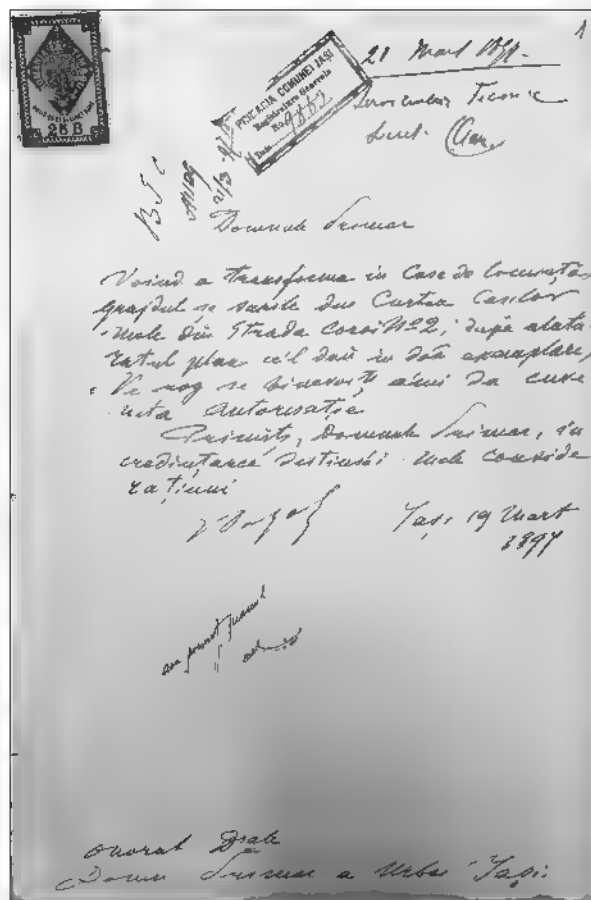 1
21 Mart 1897.
PRIMĂRIA COMUNEI IAȘI
Registratura Generala
No. 9863
Serviciului Tecnic
25 B
Domnule Primar
Voind a transforma in Case de locuință
grajdul se sarile din Curtea Caselor
mele din Strada Coroi No 2; după alatu
ratul plan ce'l daŭ in doă exemplare,
Vĕ rog se binevoiți a'mi da cuve
nita autorisație
Primiți, Domnule Primar, in
credințarea distinsei mele conside
rațiuni
Iași 19 Mart
1897
am primit
Onorat Dsale
Domnu Primar a Urbei Iași.